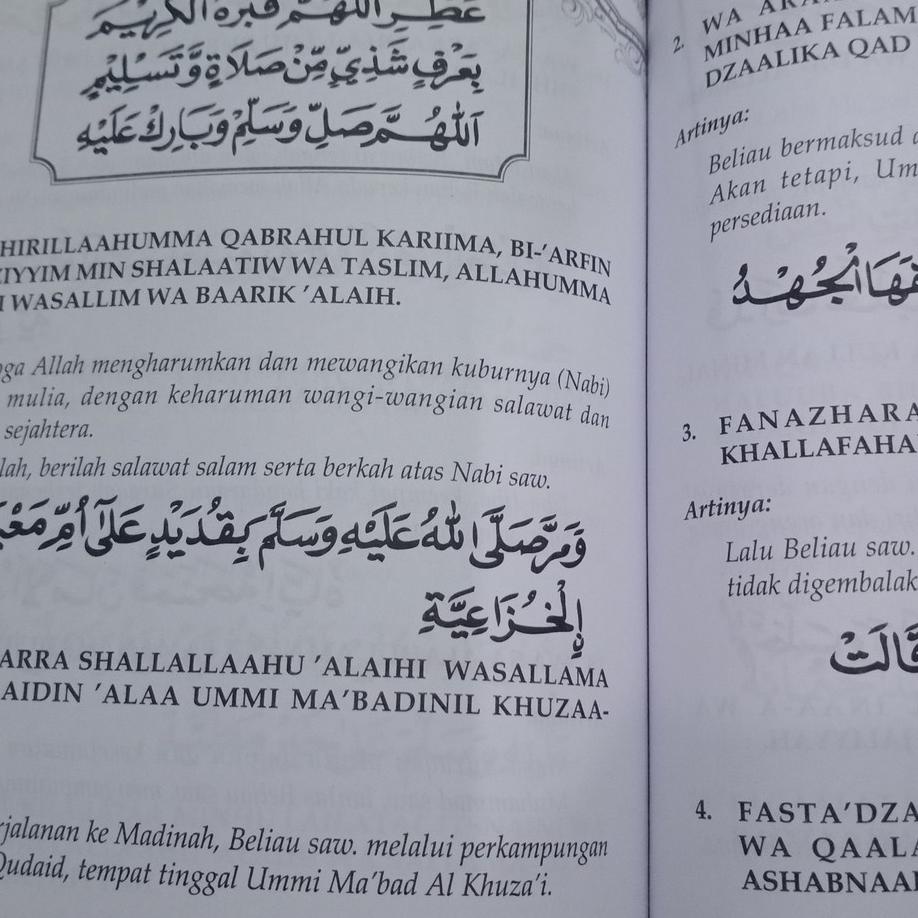 عَطِّرِ اللّٰهُمَّ قَبْرَهُ الْكَرِيْمَ
بِعَرْفٍ شَذِيٍّ مِّنْ صَلَاةٍ وَّتَسْلِيْمٍ
اَللّٰهُمَّ صَلِّ وَسَلِّمْ وَبَارِكْ عَلَيْهِ
HIRILLAAHUMMA QABRAHUL KARIIMA, BI-'ARFIN
IYYIM MIN SHALAATIW WA TASLIM, ALLAHUMMA
WASALLIM WA BAARIK 'ALAIH.
oga Allah mengharumkan dan mewangikan kuburnya (Nabi)
mulia, dengan keharuman wangi-wangian salawat dan
sejahtera.
lah, berilah salawat salam serta berkah atas Nabi saw.
وَمَرَّ صَلَّى اللهُ عَلَيْهِ وَسَلَّمَ بِقُدَيْدٍ عَلَى أُمِّ مَعْبَ
الْخُزَاعِيَّةِ
ARRA SHALLALLAAHU 'ALAIHI WASALLAMA
AIDIN 'ALAA UMMI MA'BADINIL KHUZAA-
rjalanan ke Madinah, Beliau saw. melalui perkampungan
Qudaid, tempat tinggal Ummi Ma'bad Al Khuza'i.
2. WA
MINHAA FALAM
DZAALIKA QAD
Artinya:
Beliau bermaksud
Akan tetapi, Um
persediaan.
هَا الْجُهْدُ
3. FANAZHARA
KHALLAFAHA
Artinya:
Lalu Beliau saw.
tidak digembalak
قَالَتْ
4. FASTA'DZA
WA QAALA
ASHABNAA